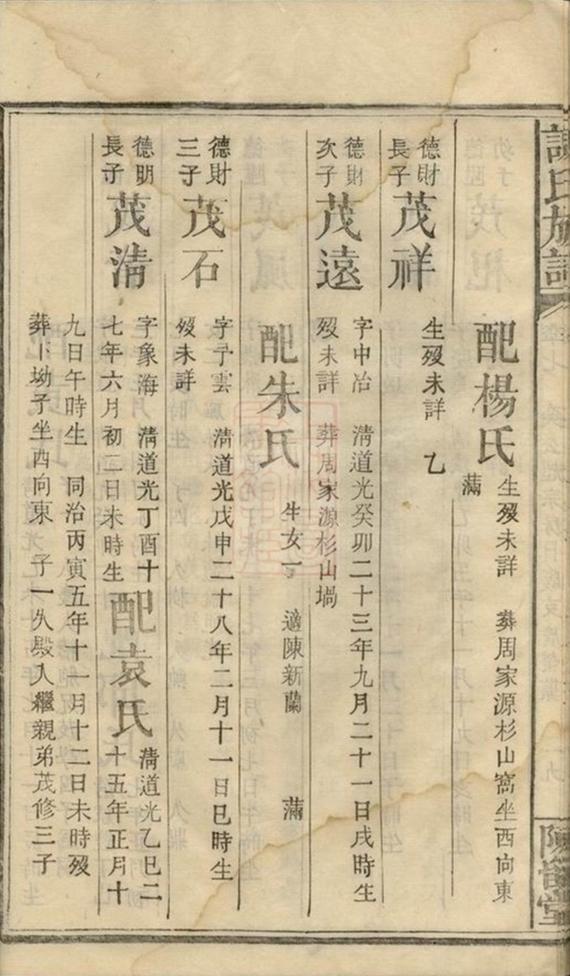 謝氏族譜
陳留堂
配楊氏 生歿未詳 葬周家源杉山窩坐西向東
滿
德財
長子
茂祥
生歿未詳
德財
次子
茂遠
字中冶 清道光癸卯二十三年九月二十一日戌時生
歿未詳 葬周家源杉山塌
配朱氏 生女一 適陳新蘭 滿
德財
三子
茂石
字子雲 清道光戊申二十八年二月十一日巳時生
歿未詳
德明
長子
茂清
字象海 清道光丁酉十
七年六月初二日未時生
配袁氏
清道光乙巳二
十五年正月十
九日午時生 同治丙寅五年十一月十二日未時歿
葬卜坳子坐西向東 子一久殿入繼親弟茂修三子